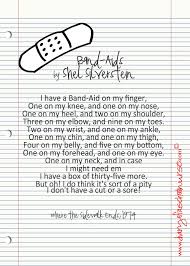 Band-Aids
by Shel Silverstein
I have a Band-Aid on my finger,
One on my knee, and one on my nose,
One on my heel, and two on my shoulder,
Three on my elbow, and nine on my toes.
Two on my wrist, and one on my ankle,
One on my chin, and one on my thigh,
Four on my belly, and five on my bottom,
One on my forehead, and one on my eye.
One on my neck, and in case
I might need em
I have a box of thirty-five more.
But oh! I do think it's sort of a pity
I don't have a cut or a sore!
where the sidewalk ends, 1974